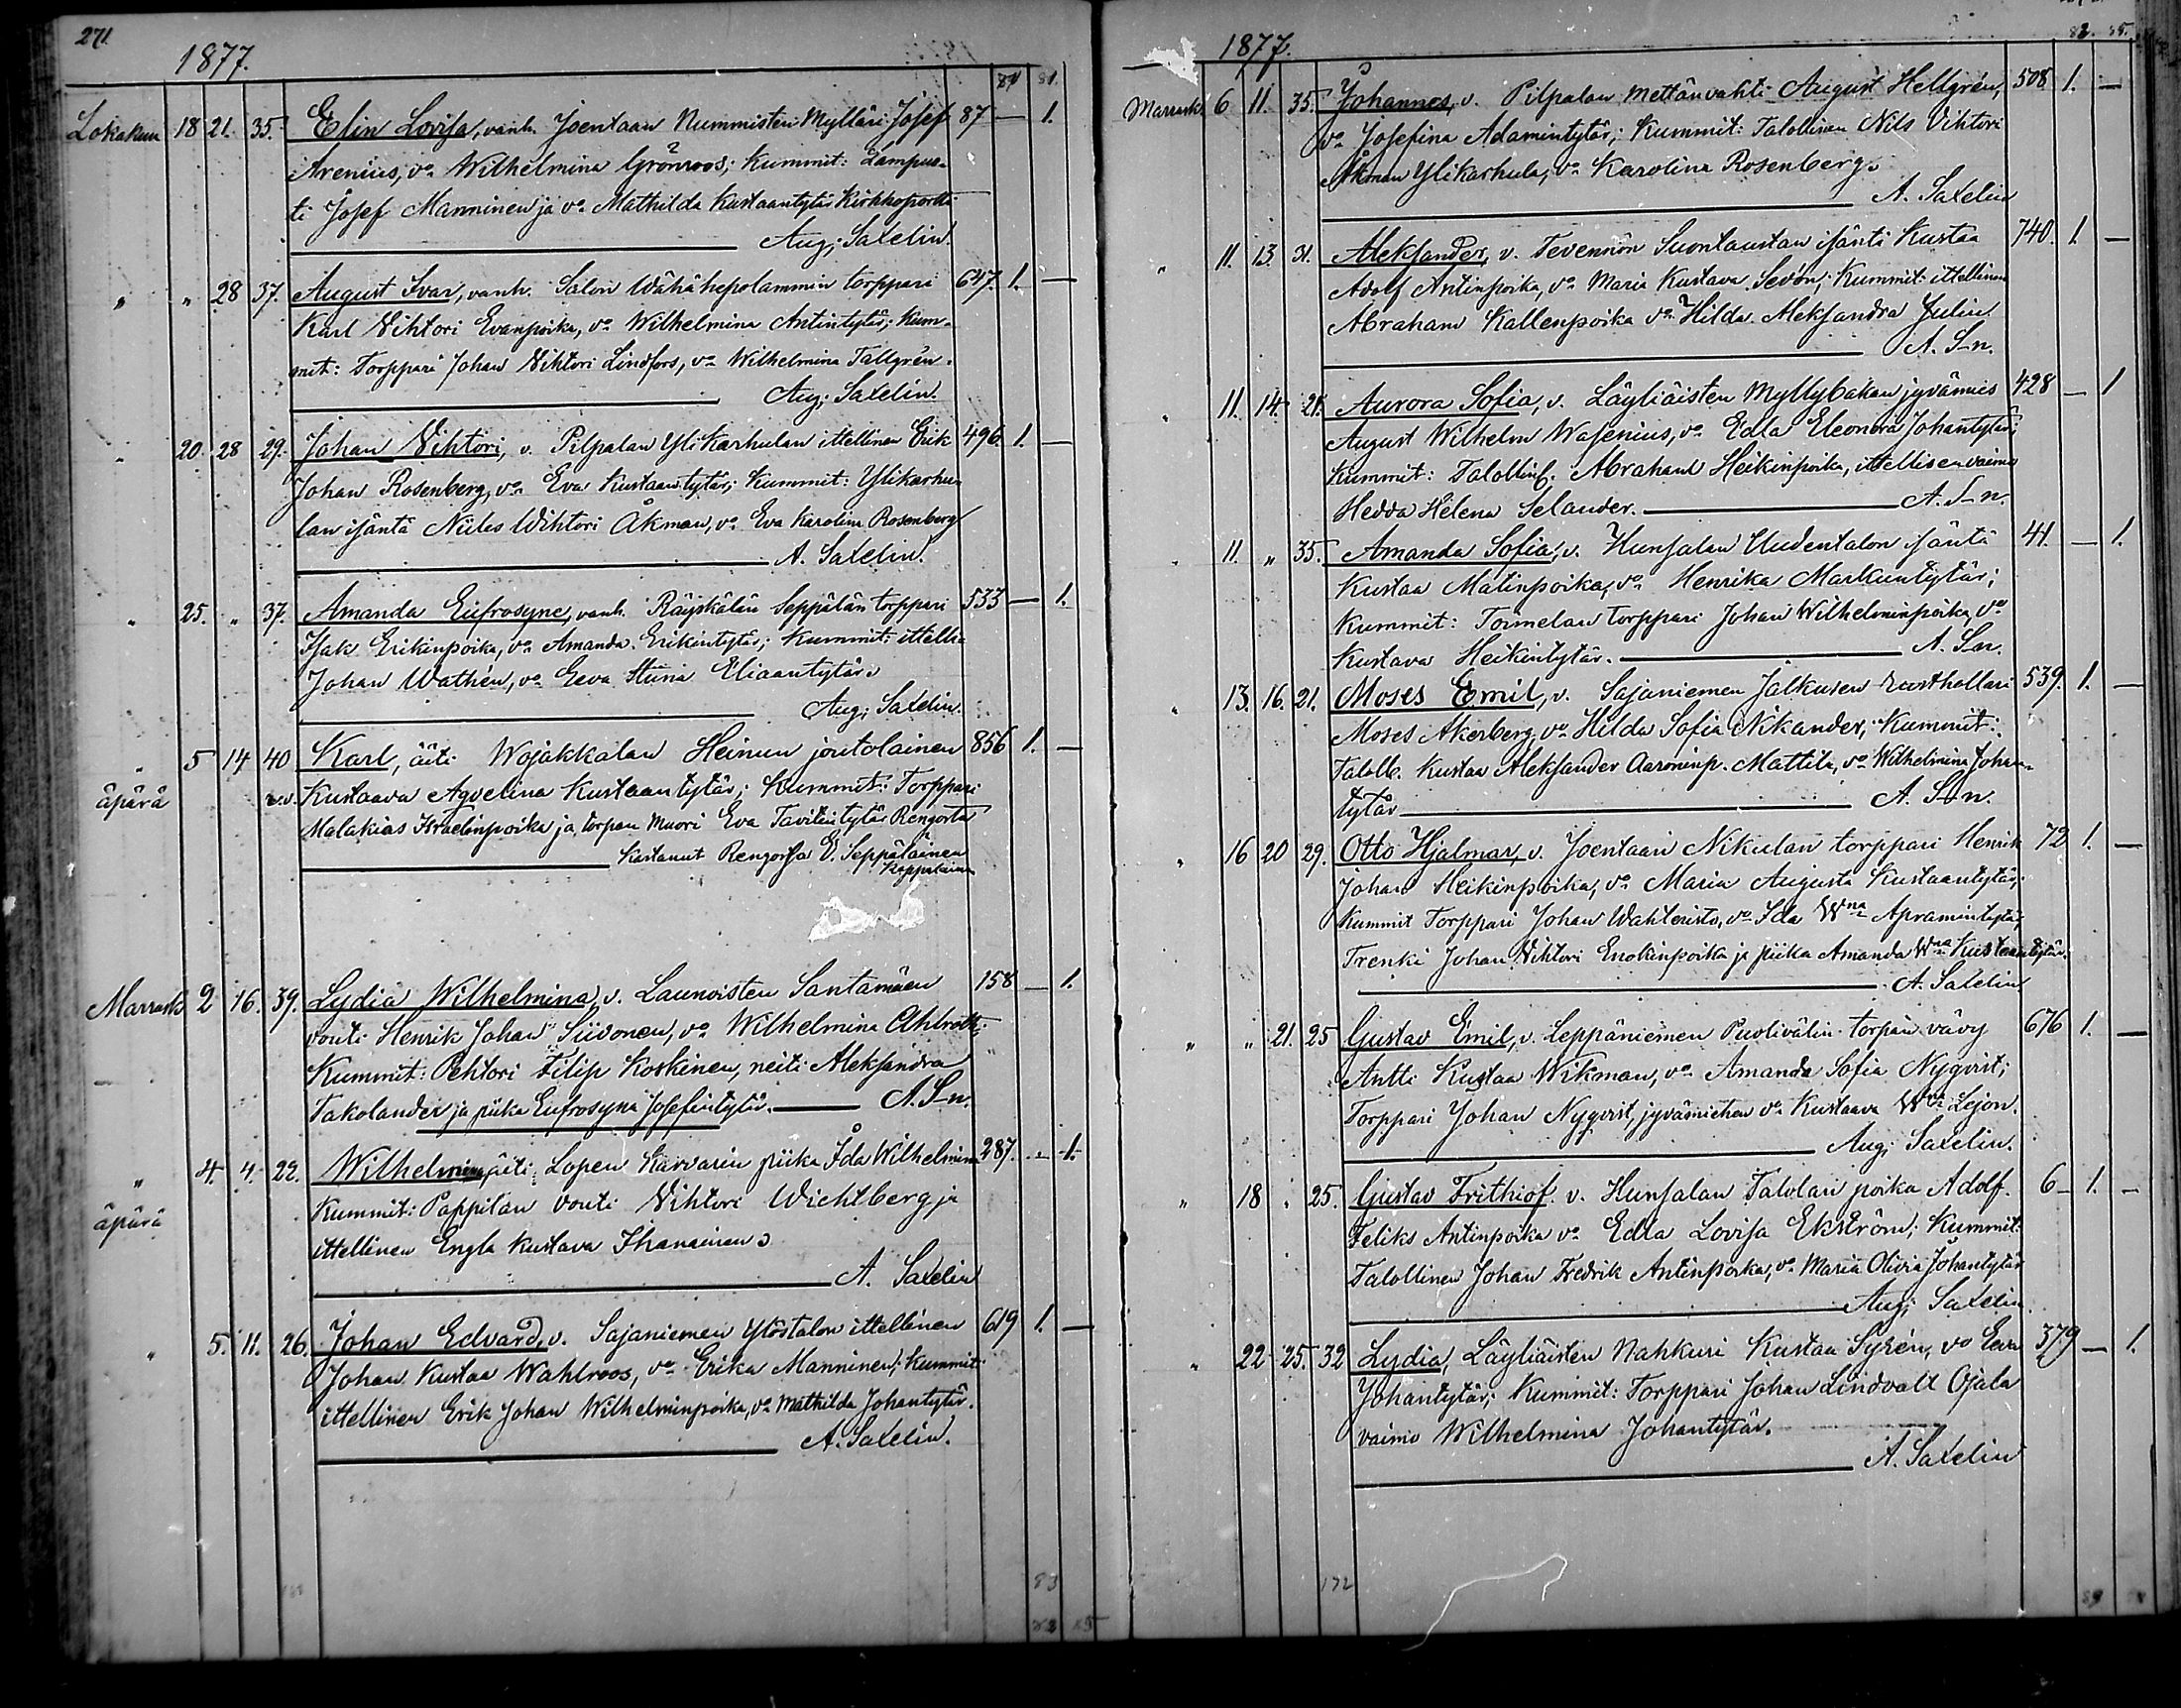 271.
1877.
81.
Lokakuu 18 21. 35. Elin Lovisa, vanh. Joentaan Nummisten Mylläri Josef 87 — 1.
Arenius, vo Wilhelmina Grönroos; Kummit: Lampuo-
ti Josef Manninen ja vo Mathilda Kustaantytär Kirkkoportti
Aug; Saxelin.
" " 28 37. August Ivar, vanh. Salon Wähähepolammin torppari 647. 1. —
Karl Vihtori Evanpoika, vo Wilhelmina Antintytär; Kum-
mit: Torppari Johan Vihtori Lindfors, vo Wilhelmina Tallgrén.
Aug; Saxelin.
" 20. 28 29. Johan Vihtori, v. Pilpalan Ylikarhulan ittellinen Erik 496. 1. —
Johan Rosenberg, vo Eva Kustaantytär; Kummit: Ylikarhu-
lan isäntä Niiles Wihtori Åkman, vo Eva Karolina Rosenberg
A. Saxelin.
" 25. " 37. Amanda Eufrosyne, vanh. Räyskälän Seppälän torppari 533 — 1.
Isak Erikinpoika, vo Amanda Erikintytär; Kummit: ittelli-
Johan Wathén, vo Eeva Stiina Eliaantytär.
Aug; Saxelin.
" 5 14 40 Karl, äiti Wojakkalan Heinun joutolainen 856 1. —
äpärä Kustaava Agvelina Kustaantytär; Kummit: Torppari
Malakias Israelinpoika ja torpan muori Eva Tavitintytär Rengosta
Kastanut Rengossa E. Seppälainen
Kappalainen
Marrask 2 16. 39. Lydia Wilhelmina, v. Launoisten Santamäen 158 — 1.
vouti Henrik Johan Siivonen, vo Wilhelmina Ahlroth;
Kummit: Pehtori Filip Koskinen, neiti Aleksandra
Takolander ja piika Eufrosyna Josefintytär. A. S-n.
" 4. 4. 22. Wilhelmina, äiti: Lopen Karvarin piika Ida Wilhelmina 287. — 1.
äpärä Kummit: Pappilan vouti Vihtori Wichtberg ja
ittellinen Engla Kustava Ihanainen
A. Saxelin
" 5. 11. 26. Johan Edvard, v. Sajaniemen Ylöstalon ittellinen 619 1. —
Johan Kustaa Wahlroos, vo Erika Manninen; Kummit:
ittellinen Erik Johan Wilhelminpoika, vo Mathilda Johantytär.
A. Saxelin.
83
1877.
82. 85.
Marrask 6 11. 35. Johannes, v. Pilpalan mettänvahti August Hellgrén, 508 1. —
vo Josefina Adamintytär; Kummit: Talollinen Nils Vihtori
Åkman Ylikarhula, vo Karolina Rosenberg.
A. Saxelin
" 11. 13. 31. Aleksander, v. Tevennön Suontaustan isäntä Kustaa 740. 1. —
Adolf Antinpoika, vo Maria Kustava Sevon; Kummit: ittellinen
Abraham Kallenpoika vo Hilda Aleksandra Julin.
A. S-n.
" 11. 14. 21. Aurora Sofia, v. Läyliäisten Myllybakan jyvämies 428 — 1
August Wilhelm Wasenius, vo Edla Eleonora Johantytär;
Kummit: Talollis. Abraham Heikinpoika, ittellisen vaimo
Hedda Helena Selander. A. S-n.
" 11. " 35. Amanda Sofia, v. Hunsalan Uudentalon isäntä 41. — 1.
Kustaa Matinpoika, vo Henrika Markuntytär;
Kummit: Tormelan torppari Johan Wilhelminpoika, vo
Kustava Heikintytär. A. S-n.
" 13. 16. 21. Moses Emil, v. Sajaniemen Jalkusen rusthollari 539. 1. —
Moses Åkerberg, vo Hilda Sofia Nikander; Kummit:
Taloll. Kustaa Aleksander Aaroninp. Mattila, vo Wilhelmina Johan-
tytär A. S-n.
" 16 20 29. Otto Hjalmar, v. Joentaan Nikulan torppari Henrik 72 1. —
Johan Heikinpoika, vo Maria Augusta Kustaantytär;
Kummit Torppari Johan Wahteristo, vo Ida Wna Apramintytär;
Trenki Johan Vihtori Enokinpoika ja piika Amanda Wna Kustaantytär.
A. Saxelin
" " 21. 25 Gustav Emil, v. Leppäniemen Puolivälin torpan vävy 676 1. —
Antti Kustaa Wikman, vo Amanda Sofia Nyqvist;
Torppari Johan Nyqvist, jyvämiehen vo Kustaava Wna Lejon.
Aug; Saxelin.
" 18 " 25. Gustav Frithiof. v. Hunsalan Talolan poika Adolf. 6 — 1. —
Feliks Antinpoika vo Edla Lovisa Ekström; Kummit:
Talollinen Johan Fredrik Antinpoika, vo Maria Olivia Johantytär
Aug; Saxelin
" 22 25. 32 Lydia, Läyliäisten Nahkuri Kustaa Syrén, vo Eeva 379 — 1.
Johantytär; Kummit: Torppari Johan Lindvall Ojala
vaimo Wilhelmina Johantytär.
A. Saxelin
132